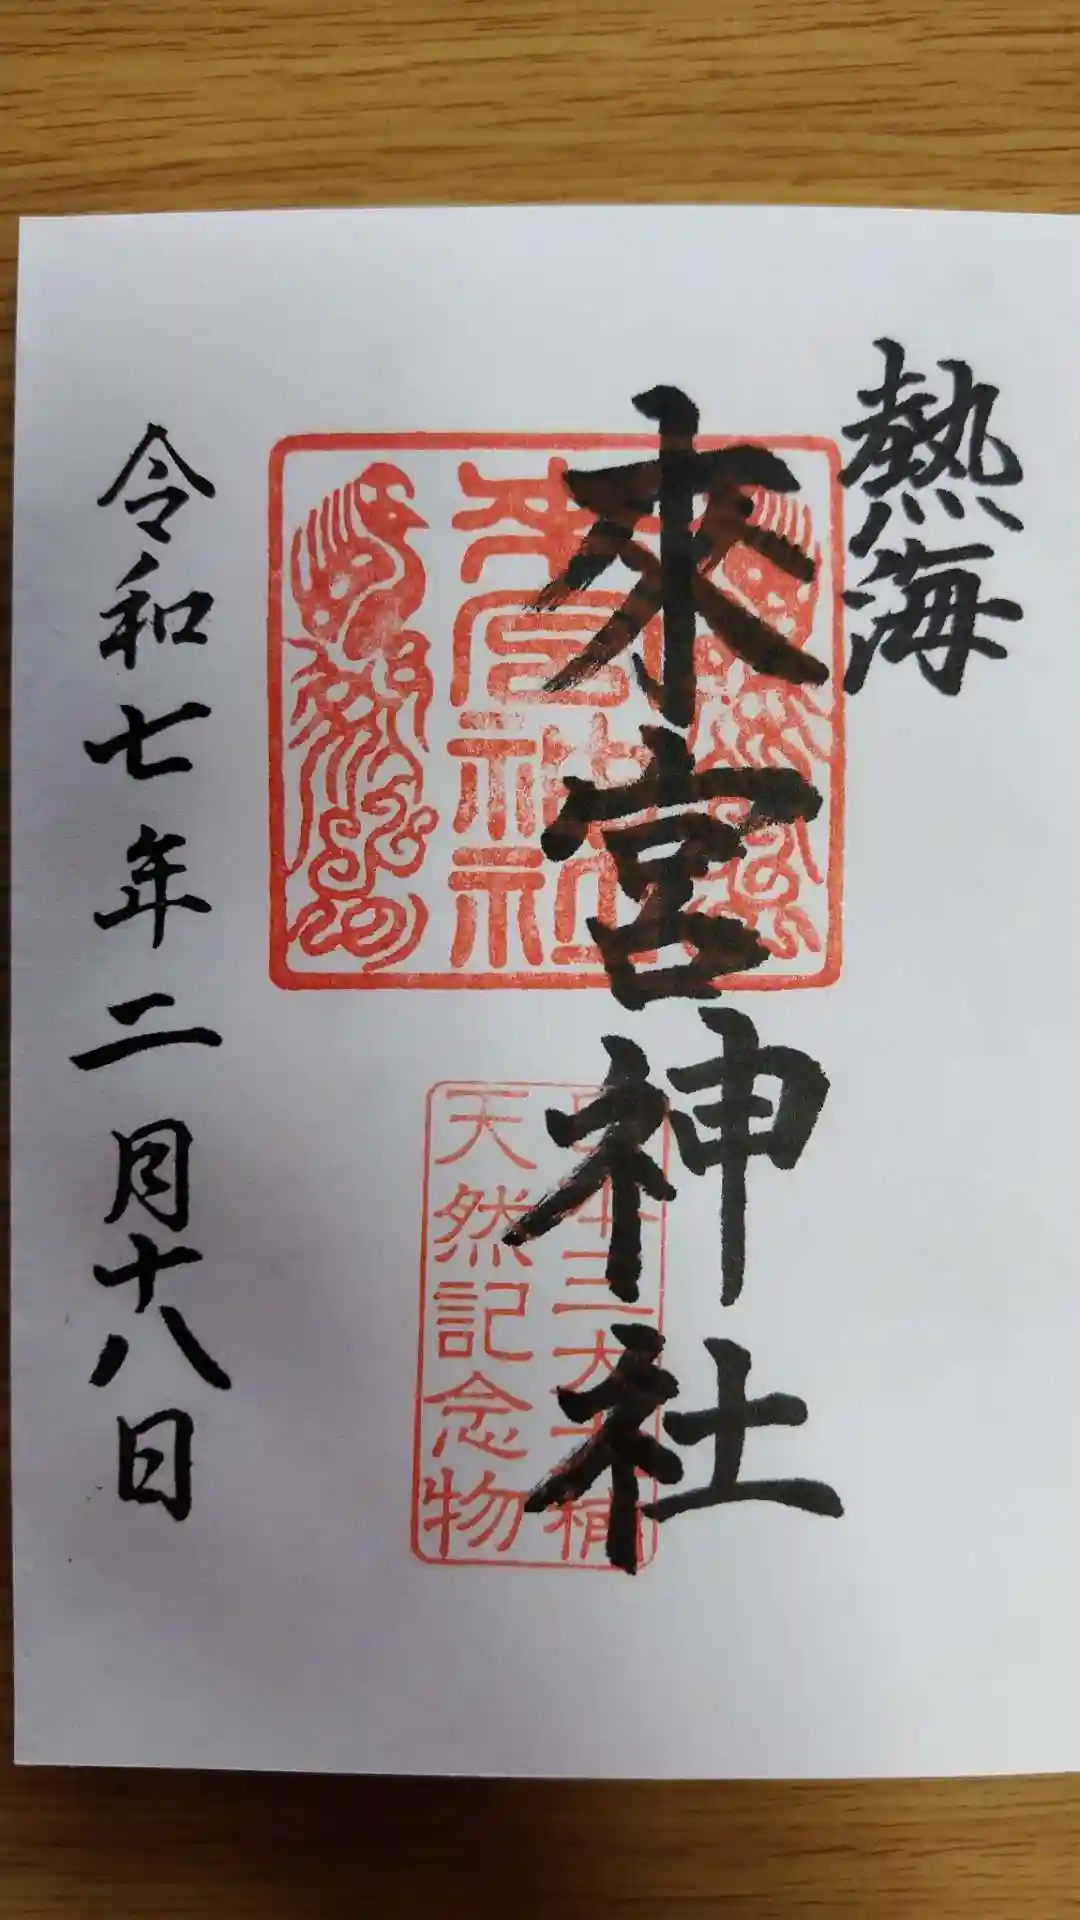 熱海
來宮神社
來宮神社
日本三大大楠
天然記念物
令和七年二月十八日